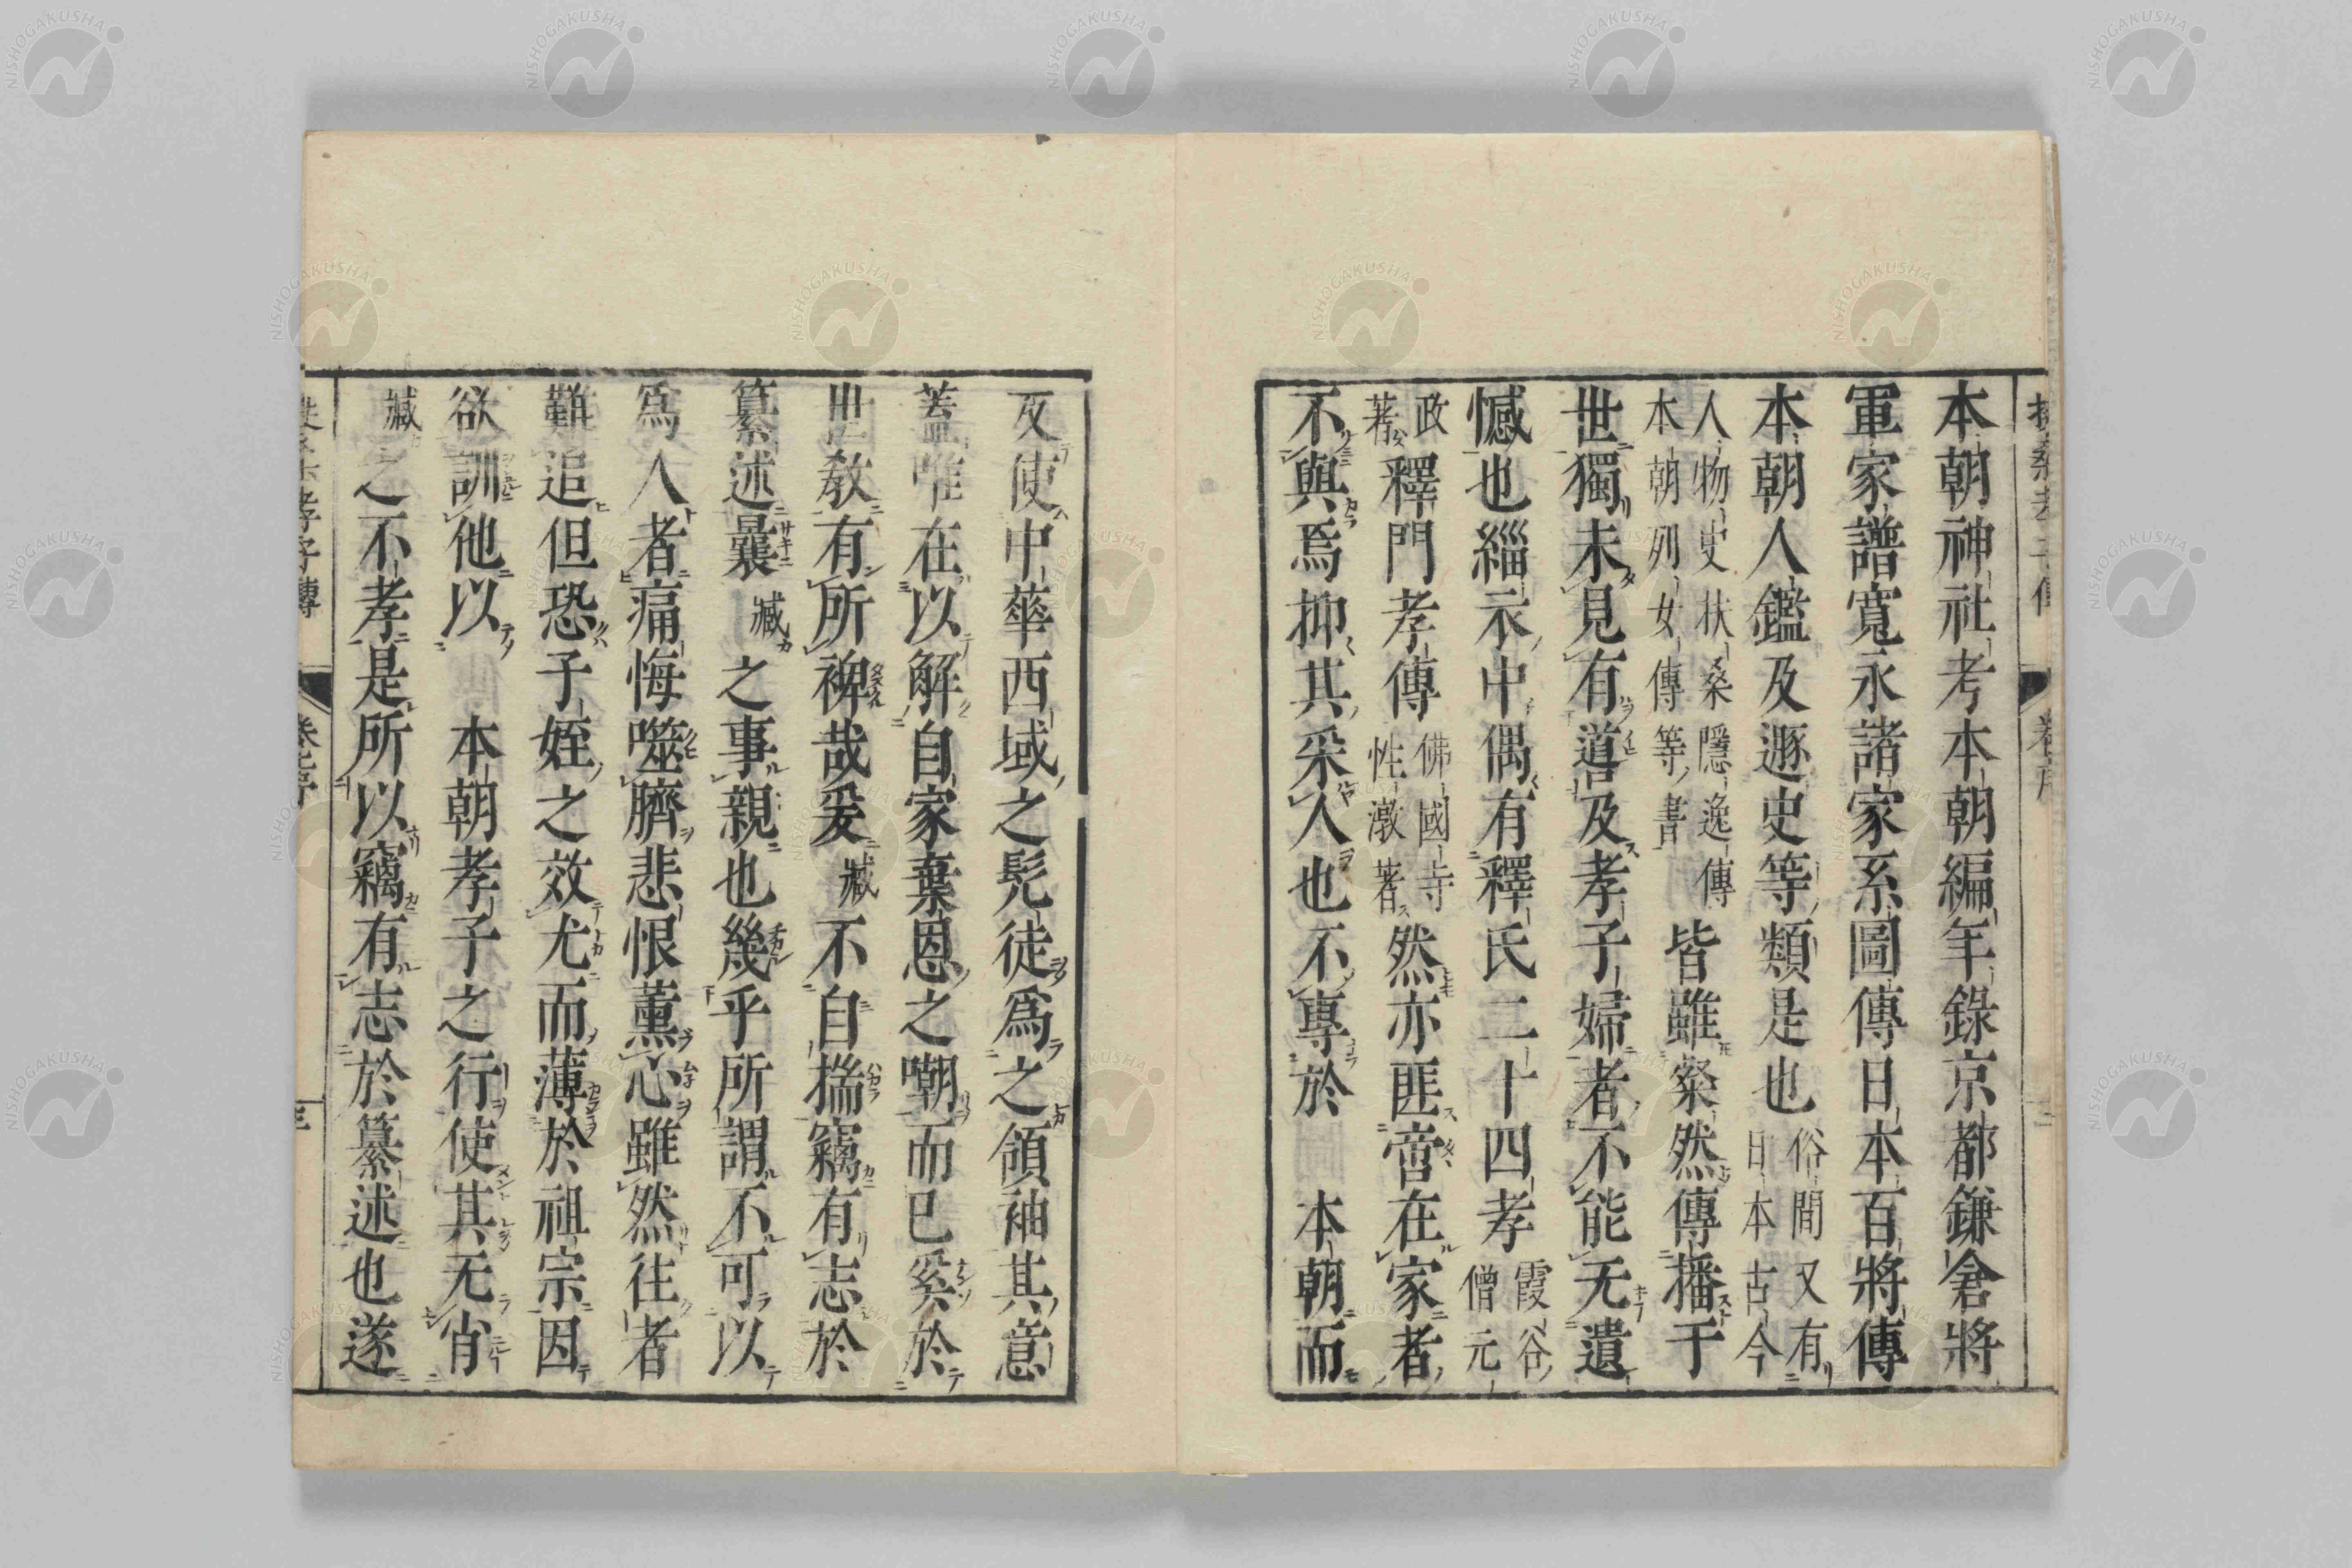 本朝神社考本朝編年錄京都鎌倉將
軍家譜寬永諸家系圖傳日本百將傳
本朝人鑑及遯史等類是也俗間又有日本古今
人物史扶桑隱逸傳本朝列女傳等書皆雖粲然傳播于
世獨未見有噵及孝子婦者不能无遺
憾也緇衣中偶有釋氏二十四孝霞谷僧元
政著釋門孝傳佛國寺性潡著然亦匪啻在家者
不與焉抑其采入也不專於 本朝而
及使中華西域之髡徒爲之領袖其意
蓋唯在以解自家棄恩之嘲而已奚於
世敎有所裨哉爰臧不自揣竊有志於
纂述曩臧之事親也幾乎所謂不可以
爲人者痛悔噬臍悲恨薰心雖然往者
難追但恐子姪之效尤而薄於祖宗因
欲訓他以 本朝孝子之行使其无肖
臧之不孝是所以竊有志於纂述也遂
NISHOGAKUSHA